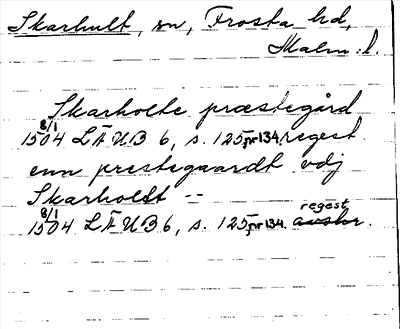 Skarhult, sn, Frosta hd,
Malm. l.
Skarholte præstegård
8/1
1504 LÄUB 6, s. 125, nr 134. regest
enn prestegaardt vdj
Skarholdt --
8/1 regest
1504 LÄUB 6, s. 125, nr 134. avskr.